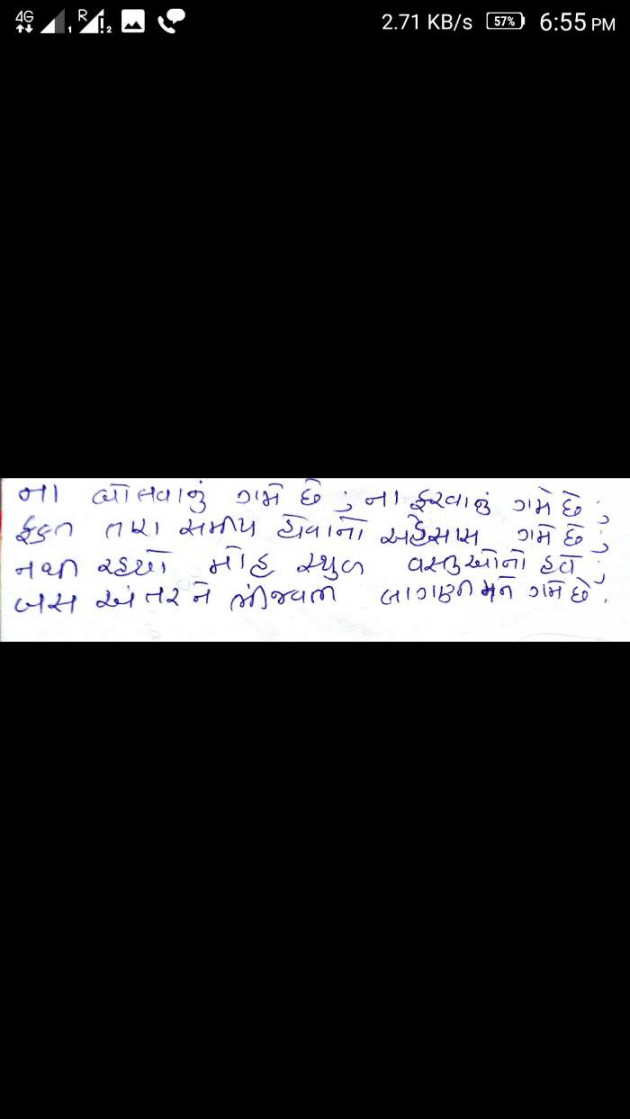 4G R 1 2 2.71 KB/s 57% 6:55 PM
ના બોલવાનું ગમે છે ; ના ફરવાનું ગમે છે ;
ફક્ત તારા સમીપ હોવાનો અહેસાસ ગમે છે ;
નથી રહ્યો મોહ સ્થુળ વસ્તુઓનો હવે ;
બસ અંતરને ભીંજવતી લાગણી મને ગમે છે .